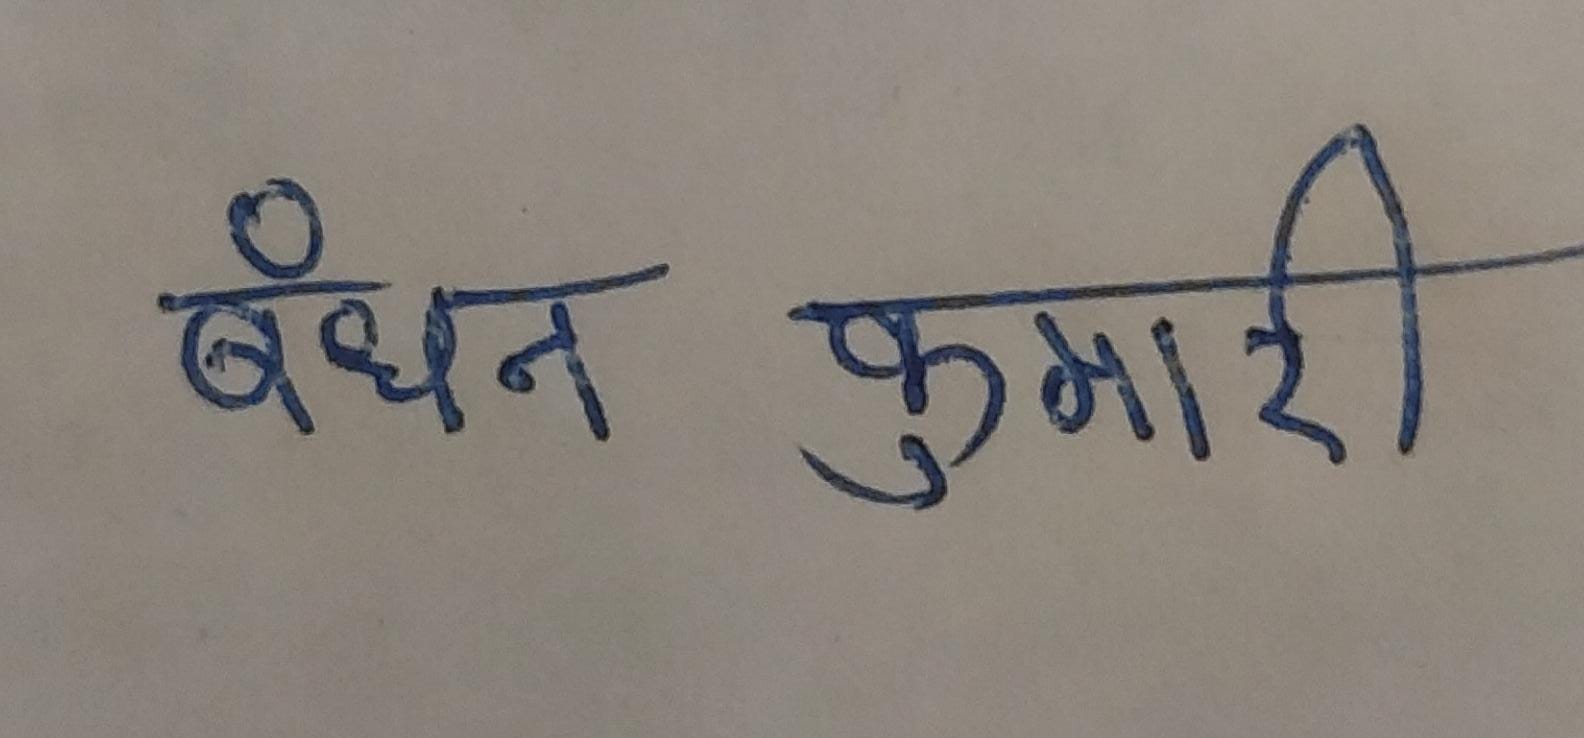 बंधन कुमारी